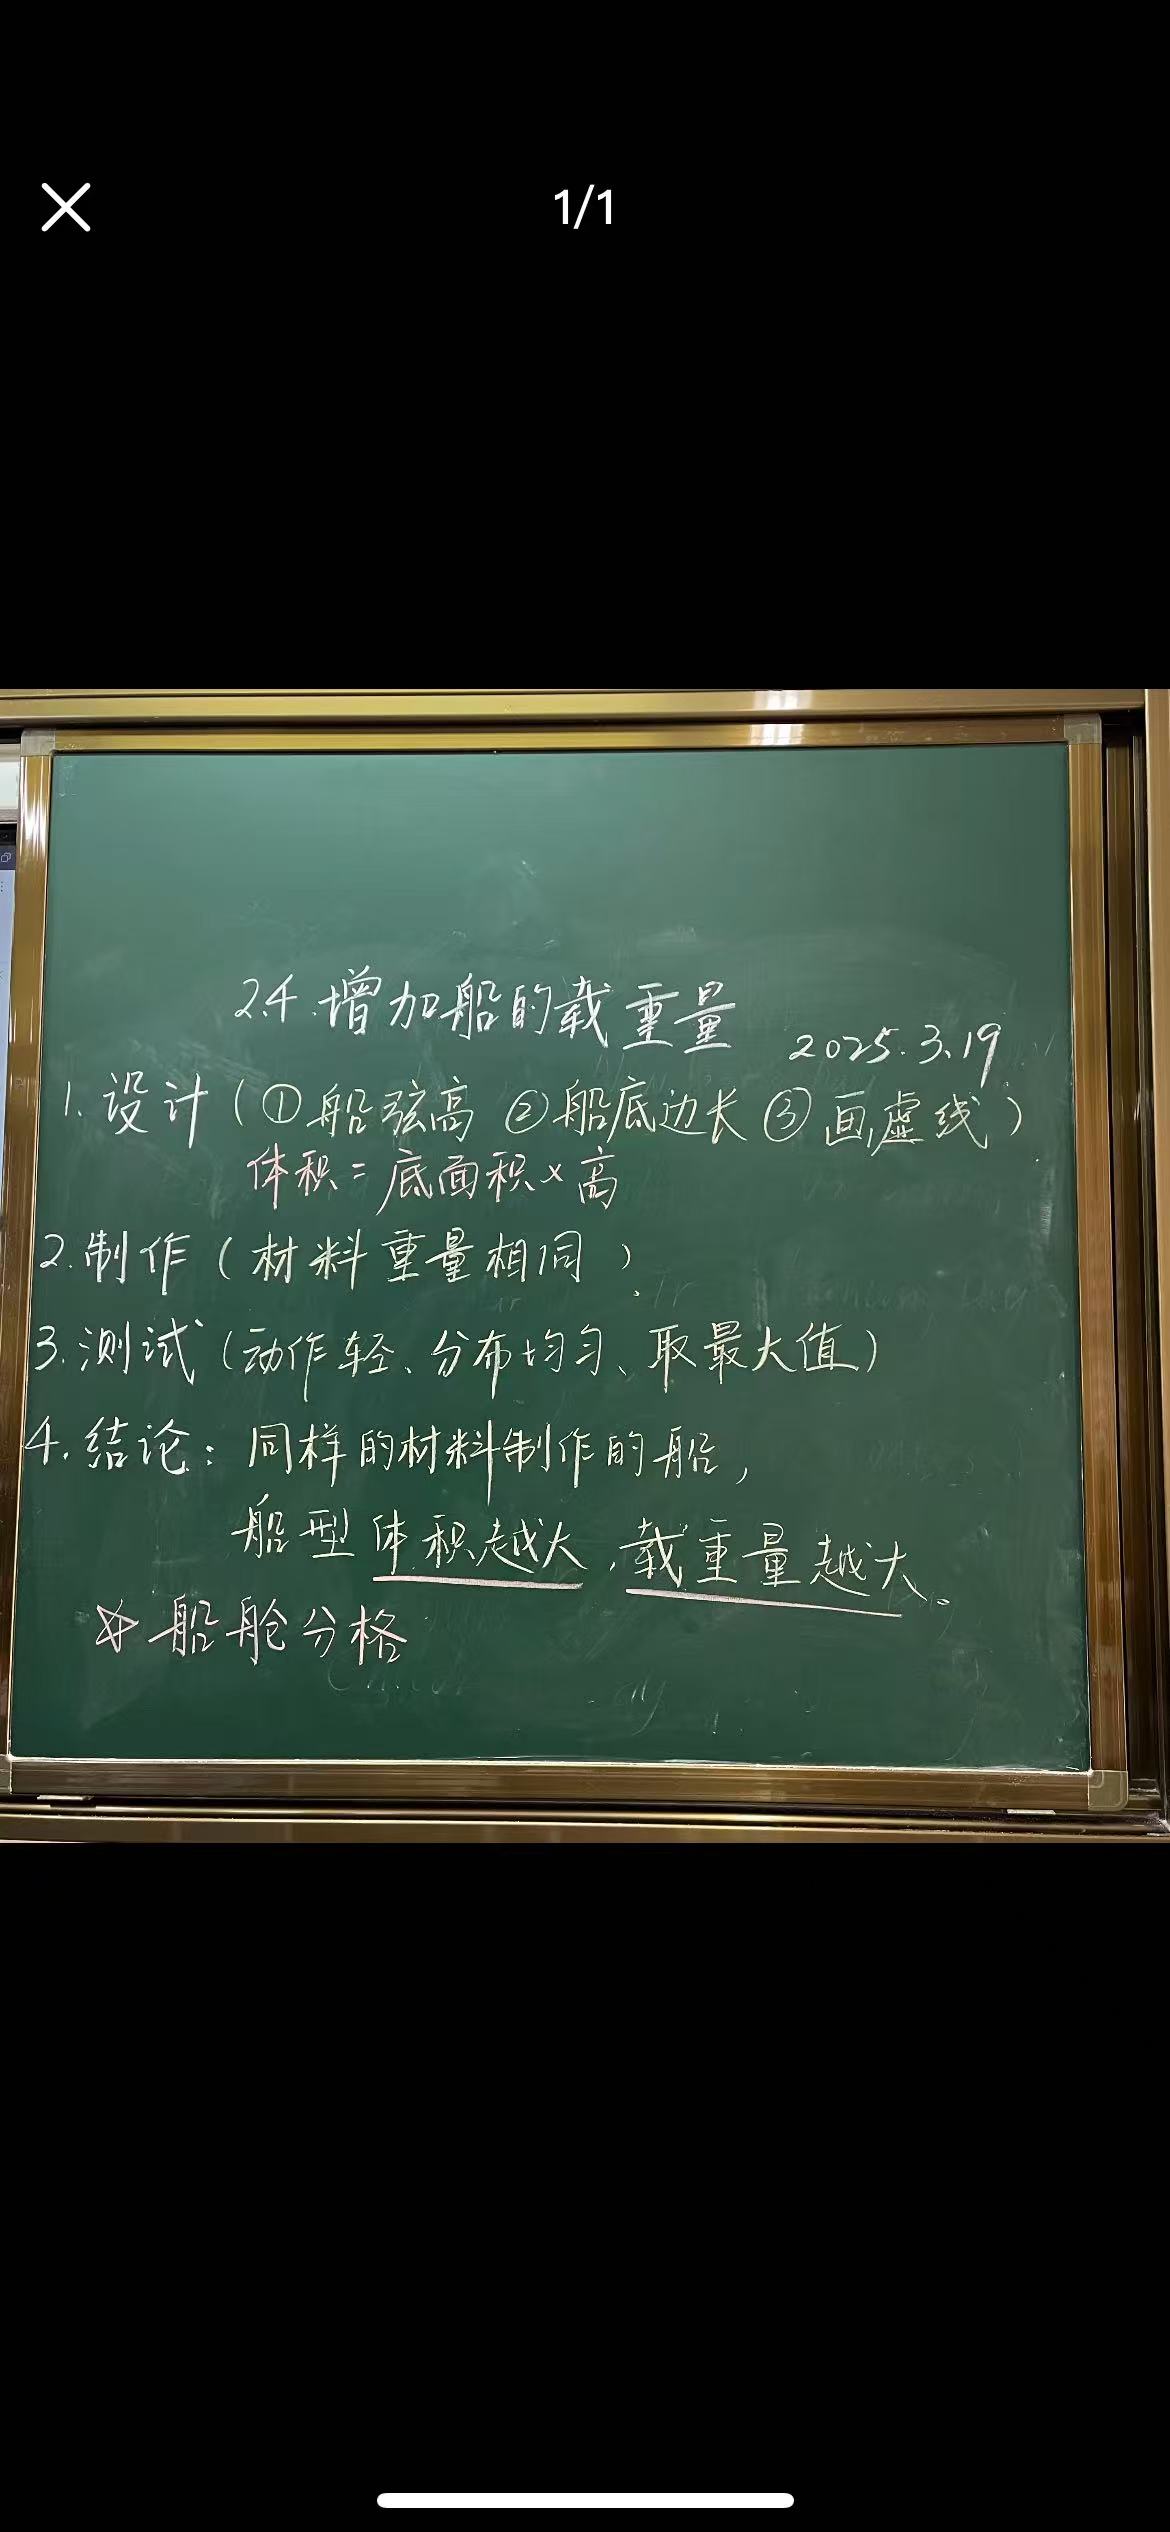 1/1
2.4.增加船的载重量
2025.3.19
1.设计(①船弦高 ②船底边长 ③画虚线)
体积=底面积×高
2.制作(材料重量相同)
3.测试(动作轻、分布均匀、取最大值)
4.结论:同样的材料制作的船,
船型体积越大,载重量越大。
☆船舱分格